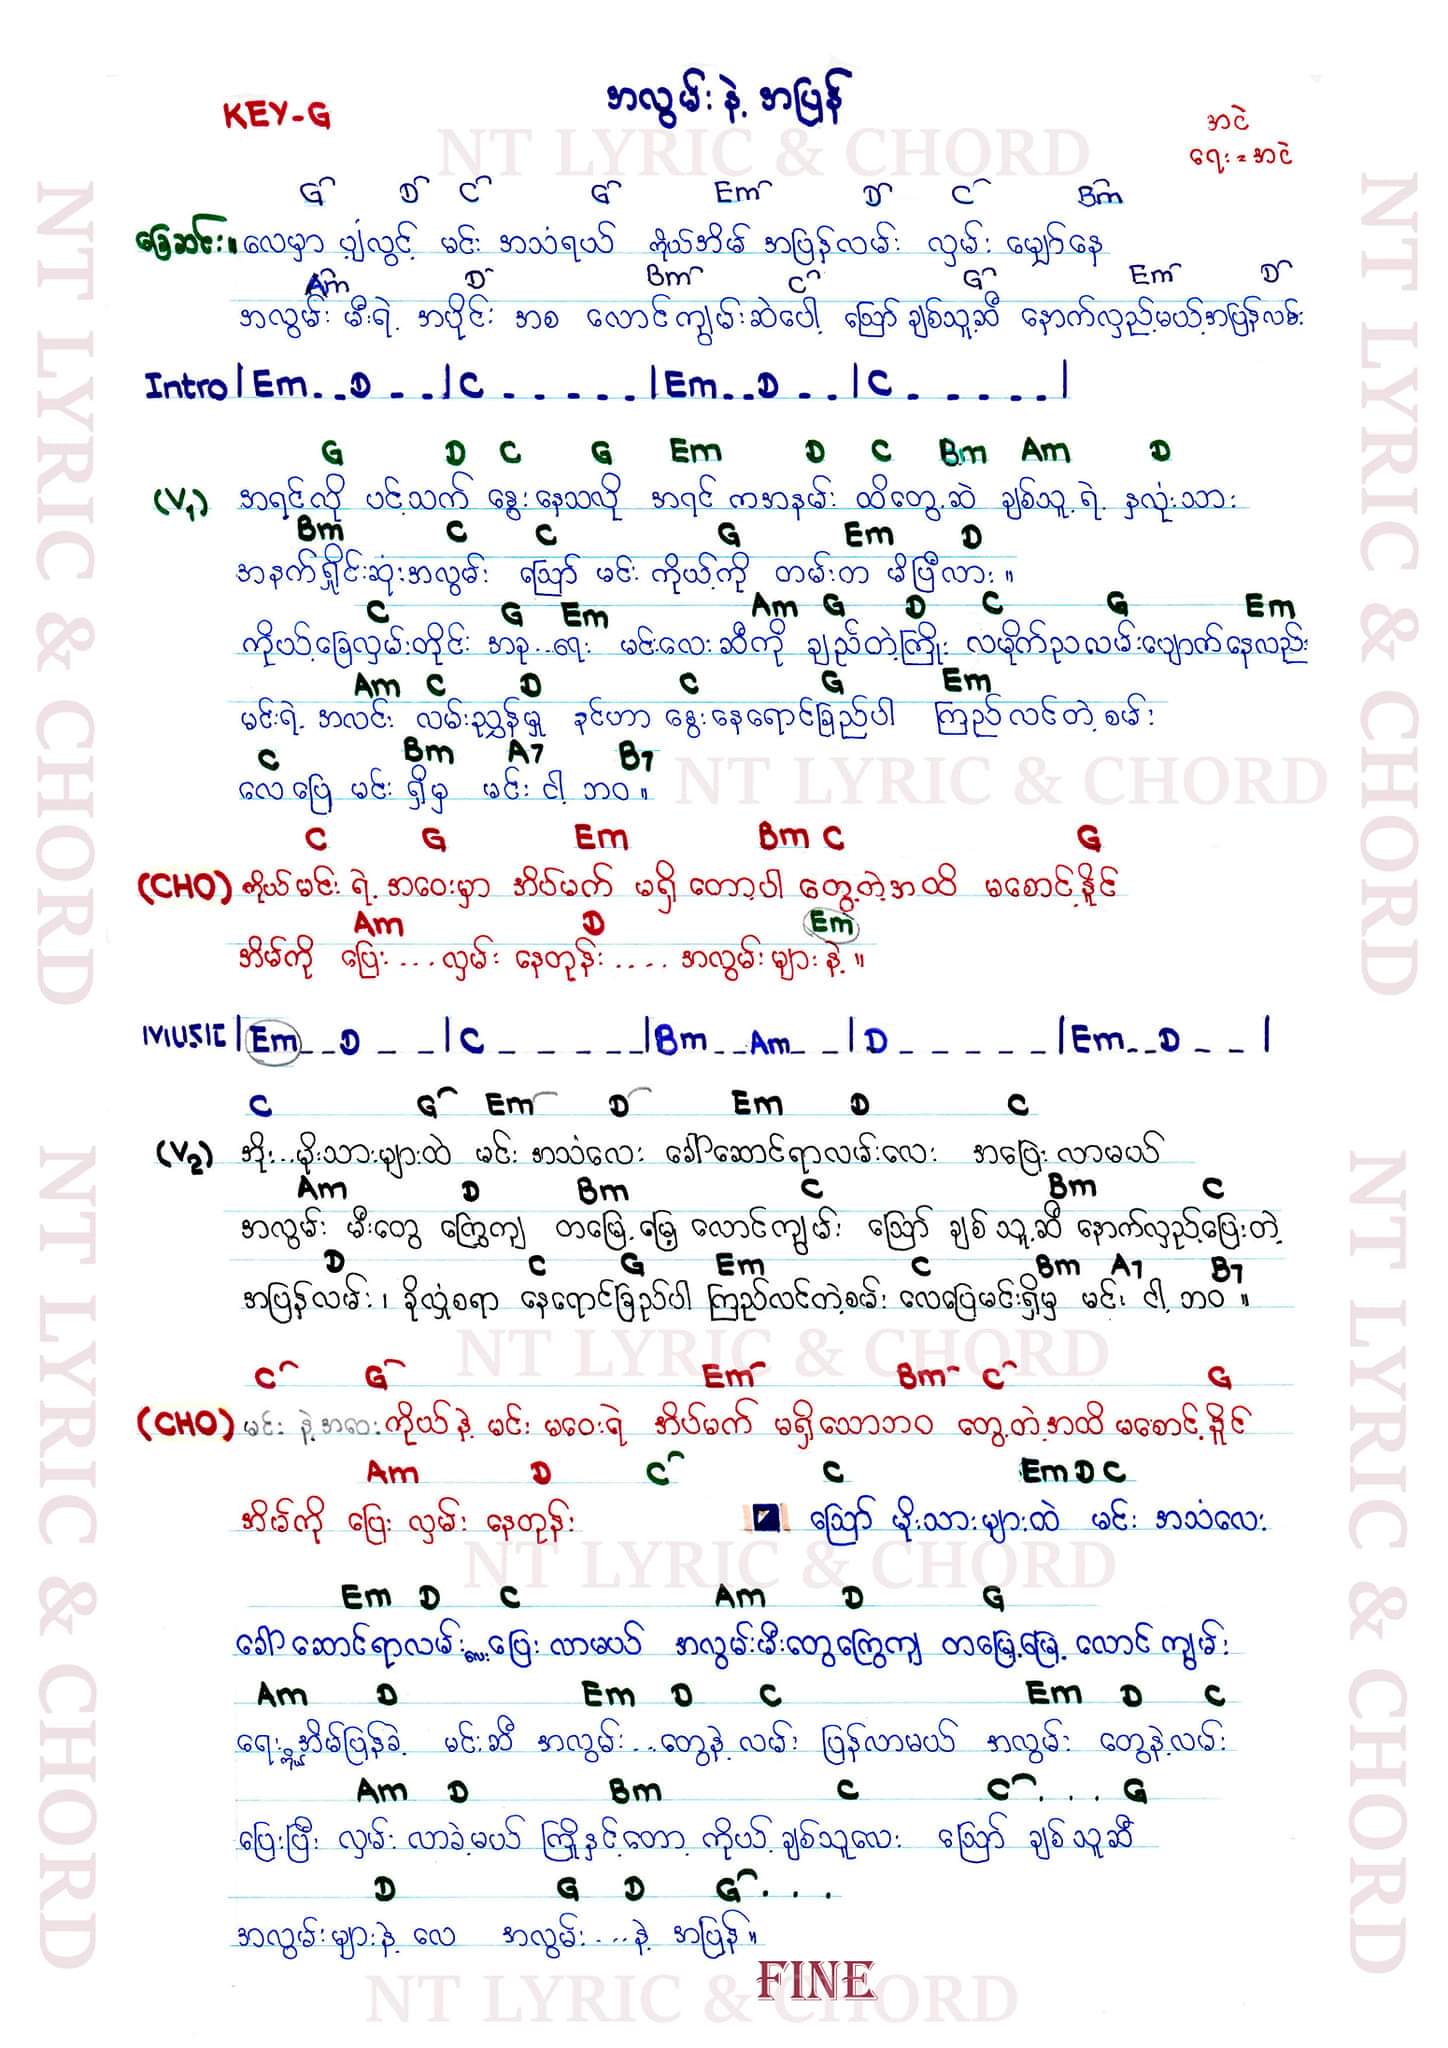 အလွမ်းနဲ့ အပြန်
KEY-G
အငဲ
ရေး = အငဲ
NT LYRIC & CHORD
G D C G Em D C Bm
ခြေဆင်း။ လေမှာ ပျံ့လွင့် မင်း အသံရယ် ကိုယ်အိမ် အပြန်လမ်း လှမ်း မျှော်နေ
Am D Bm C G Em D
အလွမ်း မီးရဲ့ အပိုင်း အစ လောင်ကျွမ်းဆဲပေါ့ ဪ ချစ်သူ့ဆီ နောက်လှည့်မယ့်အပြန်လမ်း
Intro | Em . . D . . | C . . . . . | Em . . D . . | C . . . . . |
G D C G Em D C Bm Am D
(V1) အရင်လို ပင့်သက် နွေးနေသလို အရင် ကအနမ်း ထိတွေ့ဆဲ ချစ်သူ့ရဲ့ နှလုံးသား
Bm C C G Em D
အနက်ရှိုင်းဆုံးအလွမ်း ဪ မင်း ကိုယ့်ကို တမ်းတ မိပြီလား။
C G Em Am G D C G Em
ကိုယ့်ခြေလှမ်းတိုင်း အခု...ရေး မင်းလေးဆီကို ချည်တဲ့ကြိုး လမိုက်ညလမ်းပျောက်နေလည်း
Am C D C G Em
မင်းရဲ့ အလင်း လမ်းညွှန်မှု နင်ဟာ နွေးနေရောင်ခြည်ပါ ကြည်လင်တဲ့စမ်း
C Bm A7 B7
လေပြေ မင်း ရှိမှ မင်း ငါ့ ဘဝ။
NT LYRIC & CHORD
C G Em Bm C G
(CHO) ကိုယ်မင်း ရဲ့ အဝေးမှာ အိပ်မက် မရှိ တော့ပါ တွေ့တဲ့အထိ မစောင့်နိုင်
Am D Em
အိမ်ကို ပြေး ... လှမ်း နေတုန်း .... အလွမ်းများနဲ့။
MUSIC | Em _ _ D _ _ | C _ _ _ _ _ | Bm _ _ Am _ _ | D _ _ _ _ _ | Em _ _ D _ _ |
C G Em D Em D C
(V2) အိုး...မိုးသားများထဲ မင်း အသံလေး ခေါ်ဆောင်ရာလမ်းလေး အပြေး လာမယ်
Am D Bm C Bm C
အလွမ်း မီးတွေ ကြွေကျ တမြေ့မြေ့ လောင်ကျွမ်း ဪ ချစ်သူ့ဆီ နောက်လှည့်ပြေးတဲ့
D C G Em C Bm A7 B7
အပြန်လမ်း၊ ခိုလှုံစရာ နေရောင်ခြည်ပါ ကြည်လင်တဲ့စမ်း လေပြေမင်းရှိမှ မင်း ငါ့ ဘဝ။
NT LYRIC & CHORD
C G Em Bm C G
(CHO) မင်း နဲ့အဝေး ကိုယ်နဲ့ မင်း မဝေးရဲ အိပ်မက် မရှိသောဘဝ တွေ့တဲ့အထိ မစောင့်နိုင်
Am D C C Em D C
အိမ်ကို ပြေး လှမ်း နေတုန်း ဪ မိုးသားများထဲ မင်း အသံလေး
NT LYRIC & CHORD
Em D C Am D G
ခေါ်ဆောင်ရာလမ်းလေး ပြေး လာမယ် အလွမ်းမီးတွေကြွေကျ တမြေ့မြေ့ လောင်ကျွမ်း
Am D Em D C Em D C
ရေး အိမ်ပြန်ခဲ့ မင်းဆီ အလွမ်း...တွေနဲ့ လမ်း ပြန်လာမယ် အလွမ်း တွေနဲ့လမ်း
Am D Bm C C . . . . G
ပြေးပြီး လှမ်း လာခဲ့မယ် ကြိုနှင့်တော့ ကိုယ့်ချစ်သူလေး ဪ ချစ်သူဆီ
D G D G . . .
အလွမ်းများနဲ့ လေ အလွမ်း ... နဲ့ အပြန်။
FINE
NT LYRIC & CHORD
NT LYRIC & CHORD
NT LYRIC & CHORD
NT LYRIC & CHORD
NT LYRIC & CHORD